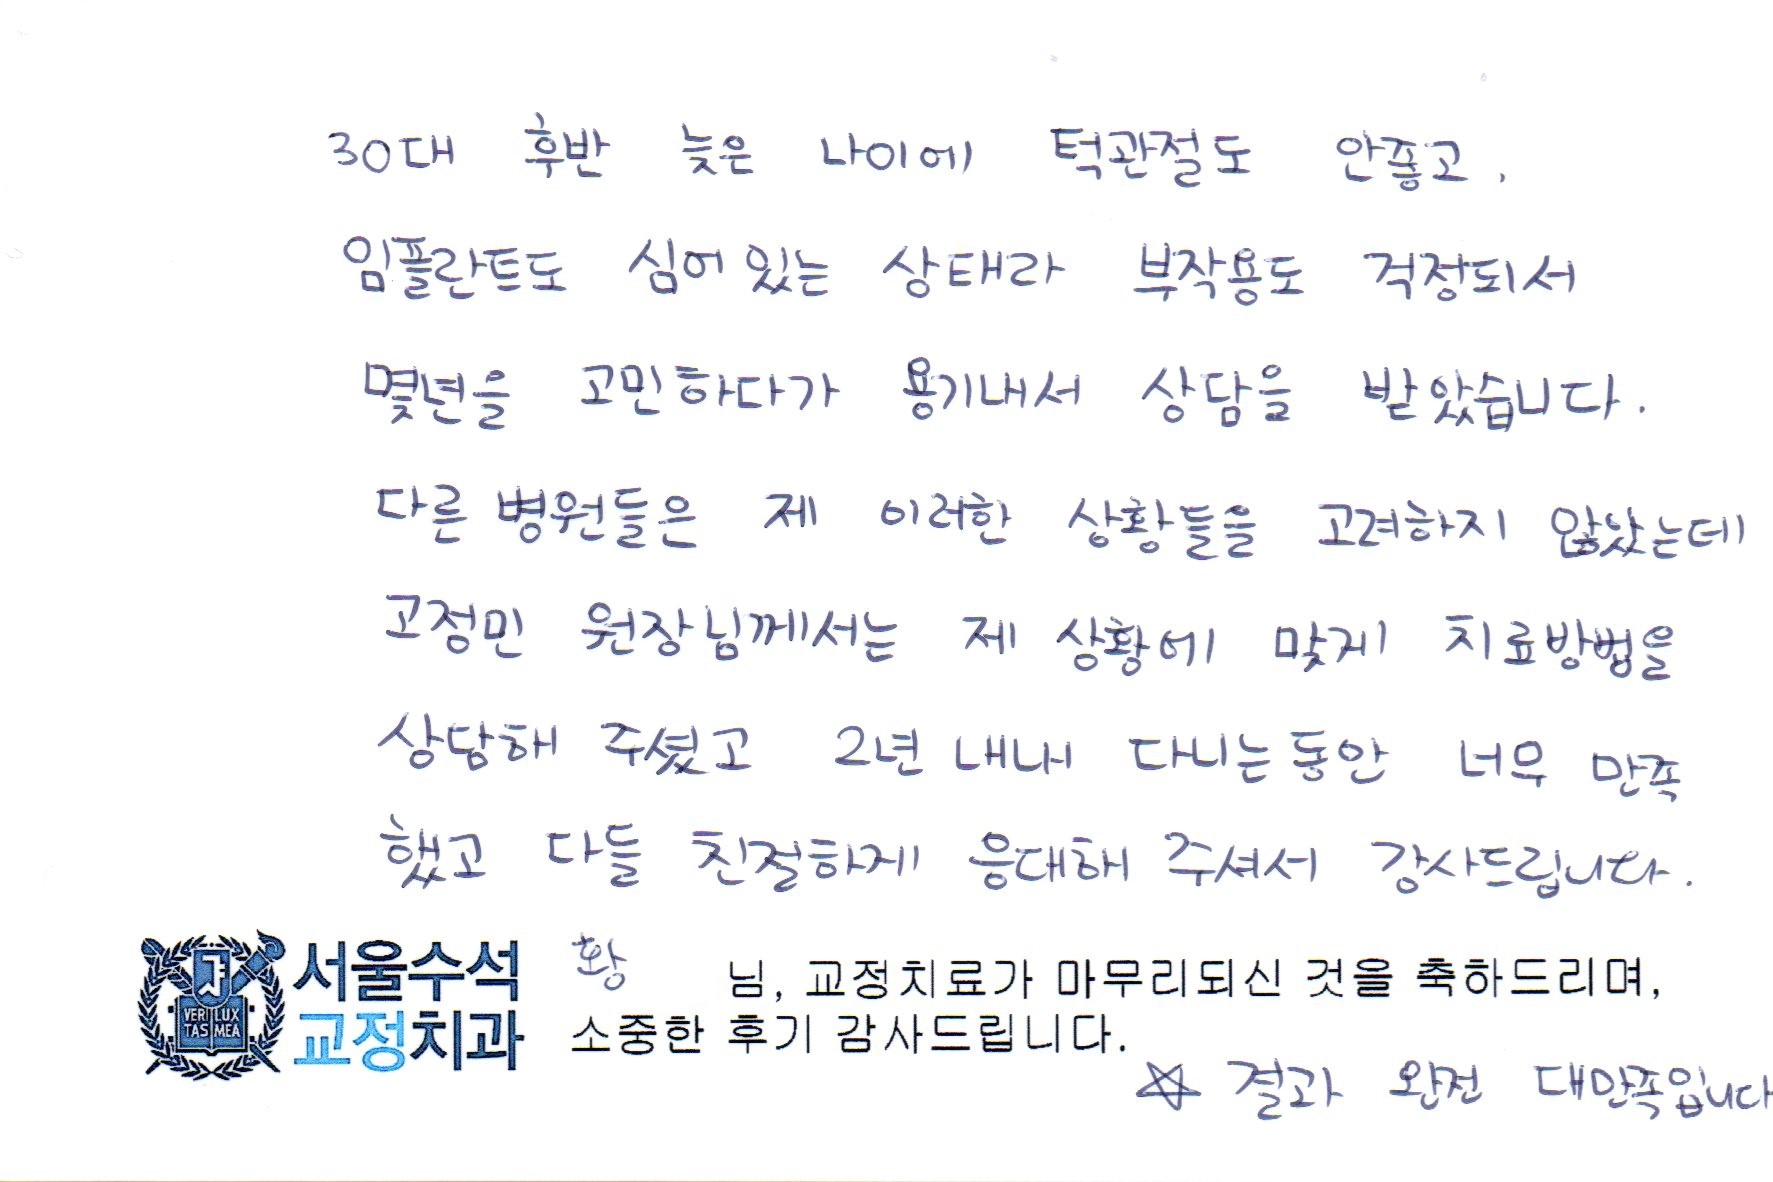 30대 후반 늦은 나이에 턱관절도 안좋고,
임플란트도 심어있는 상태라 부작용도 걱정되서
몇년을 고민하다가 용기내서 상담을 받았습니다.
다른 병원들은 제 이러한 상황들을 고려하지 않았는데
고정민 원장님께서는 제 상황에 맞게 치료방법을
상담해 주셨고 2년 내내 다니는동안 너무 만족
했고 다들 친절하게 응대해 주셔서 감사드립니다.
서울수석
교정치과
VERI LUX
TAS MEA
황 님, 교정치료가 마무리되신 것을 축하드리며,
소중한 후기 감사드립니다.
☆ 결과 완전 대만족입니다